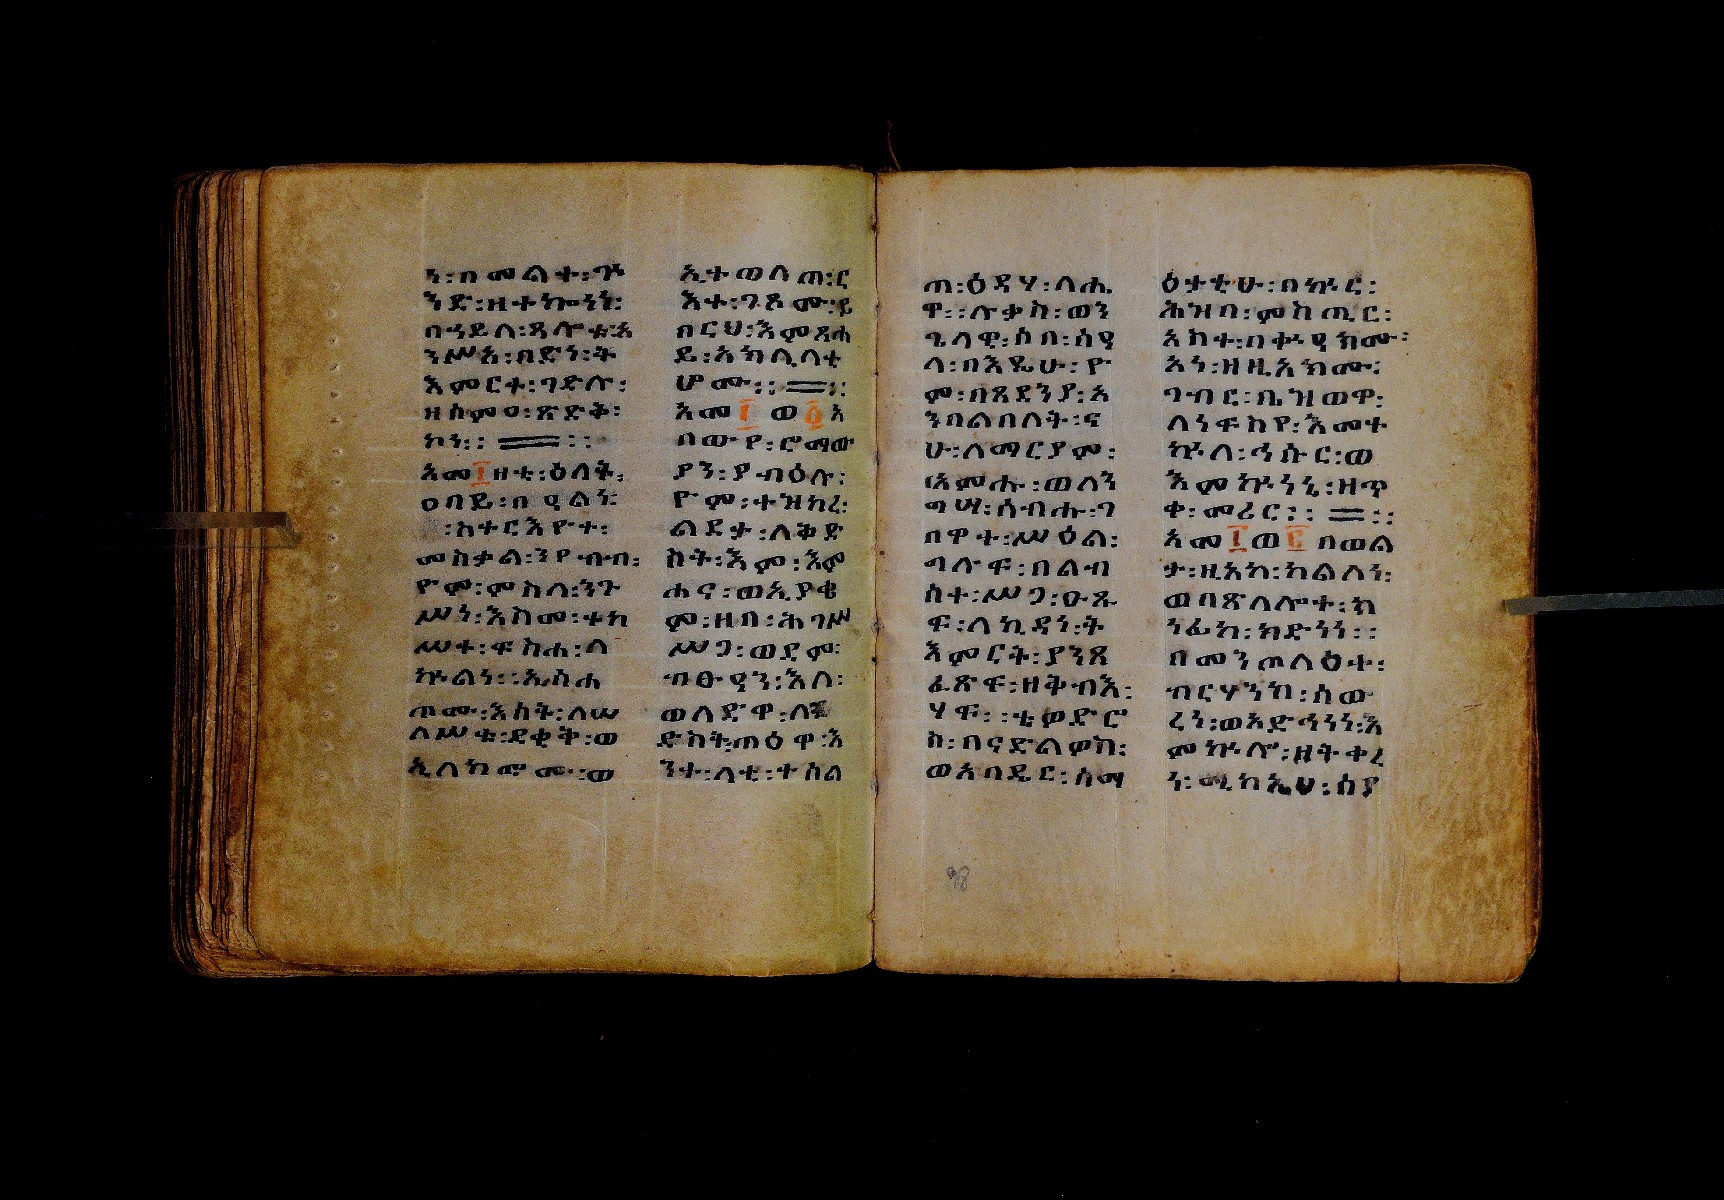 ን፡በመልተ፡ጕ
ንድ፡ዘተኰነነ፡
በኀይለ፡ጸሎቱ፡አ
ንሥአ፡በድነ፡ት
እምርተ፡ገድሉ፡
ዘሰምዐ፡ጽድቅ፡
ኮነ፡፡ ፡፡
አመ፲ዘቲ፡ዕለት፡
ዐባይ፡በዒልነ፡
፡ስተርእዮተ፡
መስቃል፡ንየብብ፡
ዮም፡ምስለ፡ንጉ
ሥነ፡እስመ፡ተከ
ሥተ፡ፍስሐ፡ለ
ኵልነ፡፡ኢስሐ
ጦሙ፡እስት፡ለሠ
ለሥቱ፡ደቂቅ፡ወ
ኢለከሞሙ፡ወ
ኢተወለጠ፡ር
እተ፡ገጾሙ፡ይ
በርህ፡እምጸሐ
ይ፡አክሊላቲ
ሆሙ፡፡ ፡፡
አመ፲ወ፩አ
በውየ፡ሮማው
ያን፡ያብዕሉ፡
ዮም፡ተዝከረ፡
ልደታ፡ለቅድ
ስት፡እም፡እም
ሐና፡ወኢያቄ
ም፡ዘበ፡ሕገሥ
ሥጋ፡ወደም፡
ብፁዓን፡እለ፡
ወለድዋ፡ለ
ድስት፡ጠዕዋ፡እ
ንተ፡ላቲ፡ተስል
ጠ፡ዕዳሃ፡ለሔ
ዋ፡፡ሉቃስ፡ወን
ጌላዊ፡ሶበ፡ሰዓ
ላ፡በእዴሁ፡ዮ
ም፡በጸደንያ፡አ
ንበልበለት፡ና
ሁ፡ለማርያም፡
በአምሑ፡ወለን
ግሣ፡ሰብሑ፡ገ
በዋተ፡ሥዕል፡
ግሉፍ፡በልብ
ሰተ፡ሥጋ፡ዑጹ
ፍ፡ለኪዳነ፡ት
እምርት፡ያንጸ
ፈጽፍ፡ዘቅብእ፡
ሃፍ፡፡ቲዎድሮ
ስ፡በናድልዎስ፡
ወአባዲር፡ሰማ
ዕታቲሁ፡በኵር፡
ሕዝበ፡ምስጢር፡
አከተ፡በቀኃዒክሙ፡
አነ፡ዘዚአክሙ፡
ገብር፡ቤዝወዋ፡
ለነፍስየ፡እመተ
ኵለ፡ኀሱር፡ወ
እምኵነኔ፡ዘጥ
ቀ፡መሪር፡፡ ፡፡
አመ፲ወ፪በወል
ታ፡ዚአከ፡ከልለነ፡
ወበጽላሎተ፡ከ
ነፊከ፡ክድነነ፡፡
በመንጦለዕተ፡
ብርሃንከ፡ሰወ
ረነ፡ወአድኅነነ፡እ
ምኵሎ፡ዘትቀረ
ነ፡ሚከኤሀ፡ሰያ
98